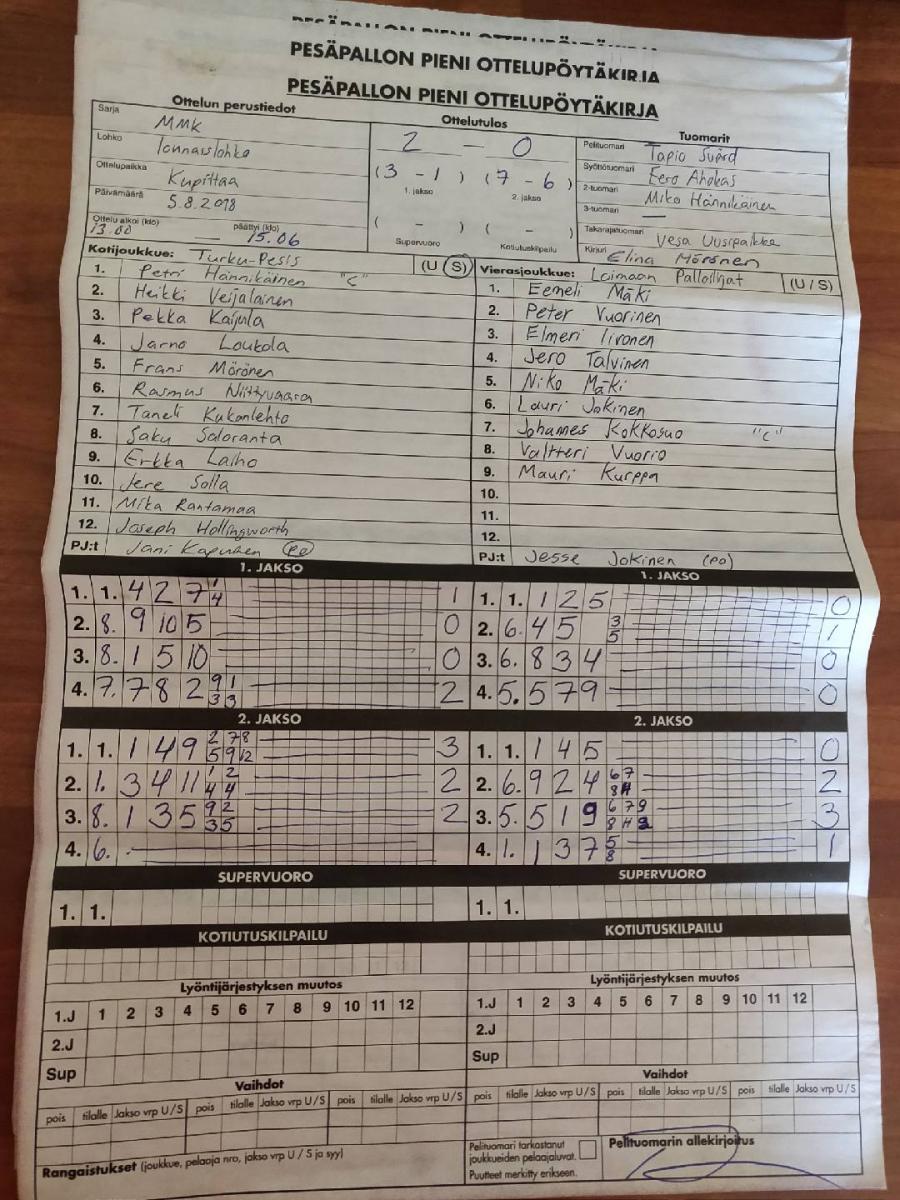 PESÄPALLON PIENI OTTELUPÖYTÄKIRJA
PESÄPALLON PIENI OTTELUPÖYTÄKIRJA
Ottelun perustiedot
Sarja MMK
Lohko lonnaislohko
Ottelupaikka Kupittaa
Päivämäärä 5.8.2018
Ottelu alkoi (klo) päättyi (klo)
13.00 — 15.06
Ottelutulos
2 — 0
(3 - 1) (7 - 6)
1. jakso 2. jakso
( - ) ( - )
Supervuoro Kotiutuskilpailu
Tuomarit
Pelituomari Tapio Svärd
Syöttötuomari Eero Ahokas
2-tuomari Miko Hännikäinen
3-tuomari —
Takarajatuomari Vesa Uusipaikka
Kirjuri Elina Mörönen
Kotijoukkue: Turku-Pesis (U / S)
1. Petri Hännikäinen "C"
2. Heikki Veijalainen
3. Pekka Kaijula
4. Jarno Loukola
5. Frans Mörönen
6. Rasmus Niittyvaara
7. Taneli Kukonlehto
8. Saku Saloranta
9. Erkka Laiho
10. Jere Solla
11. Mika Rantamaa
12. Joseph Hollingworth
PJ:t Jani Kapunen (PO)
Vierasjoukkue: Loimaan Palloilijat (U / S)
1. Eemeli Mäki
2. Peter Vuorinen
3. Elmeri Iironen
4. Jero Talvinen
5. Niko Mäki
6. Lauri Jokinen
7. Johannes Kokkosuo "C"
8. Valtteri Vuorio
9. Mauri Kurppa
10.
11.
12.
PJ:t Jesse Jokinen (PO)
1. JAKSO
1. 1. 4 2 7 1 4 1
2. 8. 9 10 5 0
3. 8. 1 5 10 0
4. 7. 7 8 2 9 1 3 3 2
2. JAKSO
1. 1. 1 4 9 2 7 8 5 9 12 3
2. 1. 3 4 11 1 2 4 4 2
3. 8. 1 3 5 9 2 3 5 2
4. 6. -
SUPERVUORO
1. 1.
KOTIUTUSKILPAILU
1. JAKSO
1. 1. 1 2 5 0
2. 6. 4 5 3 5 1
3. 6. 8 3 4 0
4. 5. 5 7 9 0
2. JAKSO
1. 1. 1 4 5 0
2. 6. 9 2 4 6 7 8 H 2
3. 5. 5 1 9 6 7 9 8 H 3
4. 1. 1 3 7 5 8 1
SUPERVUORO
1. 1.
KOTIUTUSKILPAILU
Lyöntijärjestyksen muutos
1.J 1 2 3 4 5 6 7 8 9 10 11 12
2.J
Sup
Lyöntijärjestyksen muutos
1.J 1 2 3 4 5 6 7 8 9 10 11 12
2.J
Sup
Vaihdot
pois tilalle Jakso vrp U / S pois tilalle Jakso vrp U / S pois tilalle Jakso vrp U / S
Vaihdot
pois tilalle Jakso vrp U / S pois tilalle Jakso vrp U / S pois tilalle Jakso vrp U / S
Rangaistukset (joukkue, pelaaja nro, jakso vrp U / S ja syy)
Pelituomari tarkastanut
joukkueiden pelaajaluvat.
Puutteet merkitty erikseen.
Pelituomarin allekirjoitus